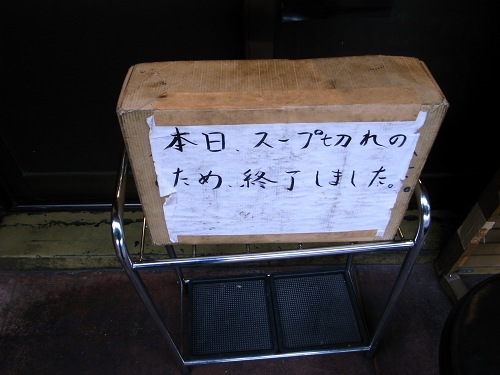 本日、スープ切れの
ため、終了しました。